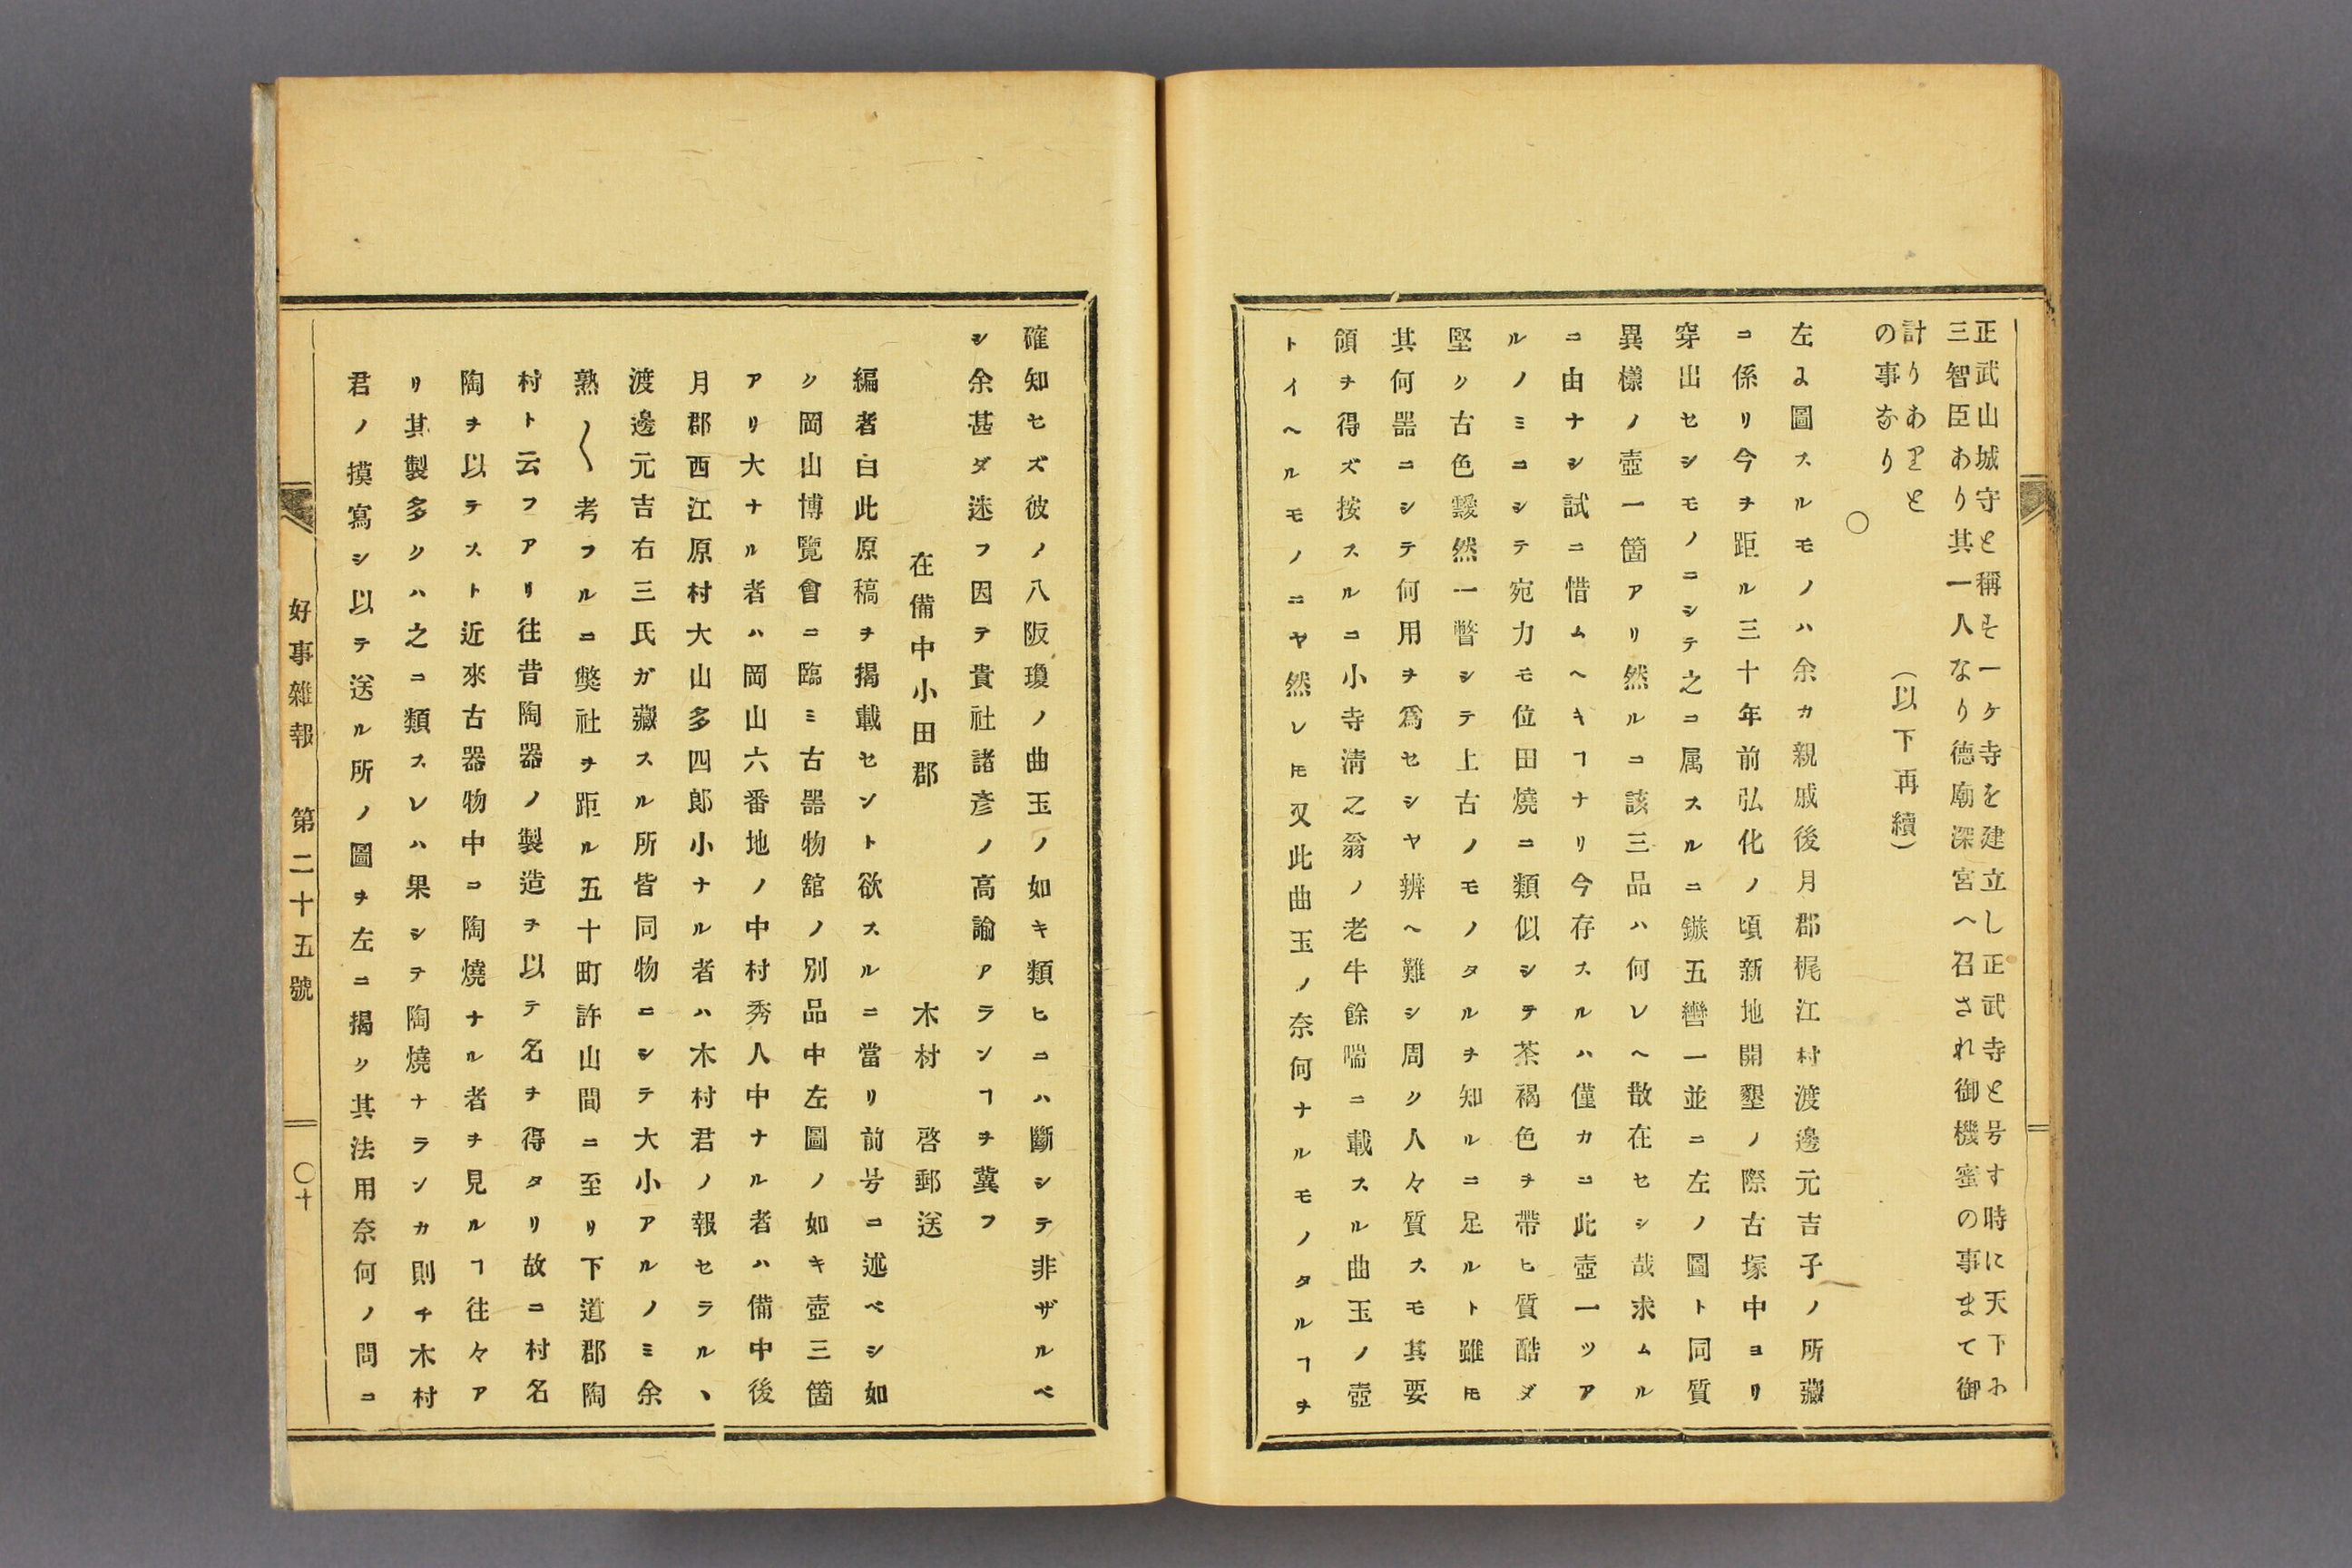 正武山城守と稱す一ケ寺を建立し正武寺と号す時に天下お
三智臣あり其一人なり德廟深宮へ召され御機蜜の事まて御
計りありと
の事なり
（以下再續）
○
左よ圖スルモノハ余カ親戚後月郡梶江村渡邊元吉子ノ所藏
コ係リ今ヲ距ル三十年前弘化ノ頃新地開墾ノ際古塚中ヨリ
穿出セシモノニシテ之コ属スルニ鏃五轡一並ニ左ノ圖ト同質
異樣ノ壺一箇アリ然ルコ該三品ハ何レヘ散在セシ哉求ムル
コ由ナシ試ニ惜ムヘキヿナリ今存スルハ僅カコ此壺一ツア
ルノミコシテ宛力モ位田燒ニ類似シテ茶褐色ヲ帶ヒ質酷ダ
堅ク古色靉然一瞥シテ上古ノモノタルヲ知ルニ足ルト雖モ
其何噐ニシテ何用ヲ爲セシヤ辨ヘ難シ周ク人々質スモ其要
領ヲ得ズ按スルコ小寺清之翁ノ老牛餘喘ニ載スル曲玉ノ壺
トイヘルモノニヤ然レ𪜈又此曲玉ノ奈何ナルモノタルヿヲ
確知セズ彼ノ八阪瓊ノ曲玉ノ如キ類ヒコハ斷シテ非ザルベ
シ余甚ダ迷フ因テ貴社諸彥ノ高諭アランヿヲ冀フ
在備中小田郡　木村　啓郵送
編者白此原稿ヲ揭載セント欲スルニ當リ前号コ述ベシ如
ク岡山博覽會ニ臨ミ古噐物舘ノ別品中左圖ノ如キ壺三箇
アリ大ナル者ハ岡山六番地ノ中村秀人中ナル者ハ備中後
月郡西江原村大山多四郎小ナル者ハ木村君ノ報セラルヽ
渡邊元吉右三氏ガ藏スル所皆同物ニシテ大小アルノミ余
熟〱考フルコ獘社ヲ距ル五十町許山間ニ至リ下道郡陶
村ト云フアリ往昔陶器ノ製造ヲ以テ名ヲ得タリ故コ村名
陶ヲ以テスト近來古器物中コ陶燒ナル者ヲ見ルヿ往々ア
リ其製多クハ之コ類スレハ果シテ陶燒ナランカ則チ木村
君ノ摸寫シ以テ送ル所ノ圖ヲ左コ揭ク其法用奈何ノ問コ
好事雜報　第二十五號　○十